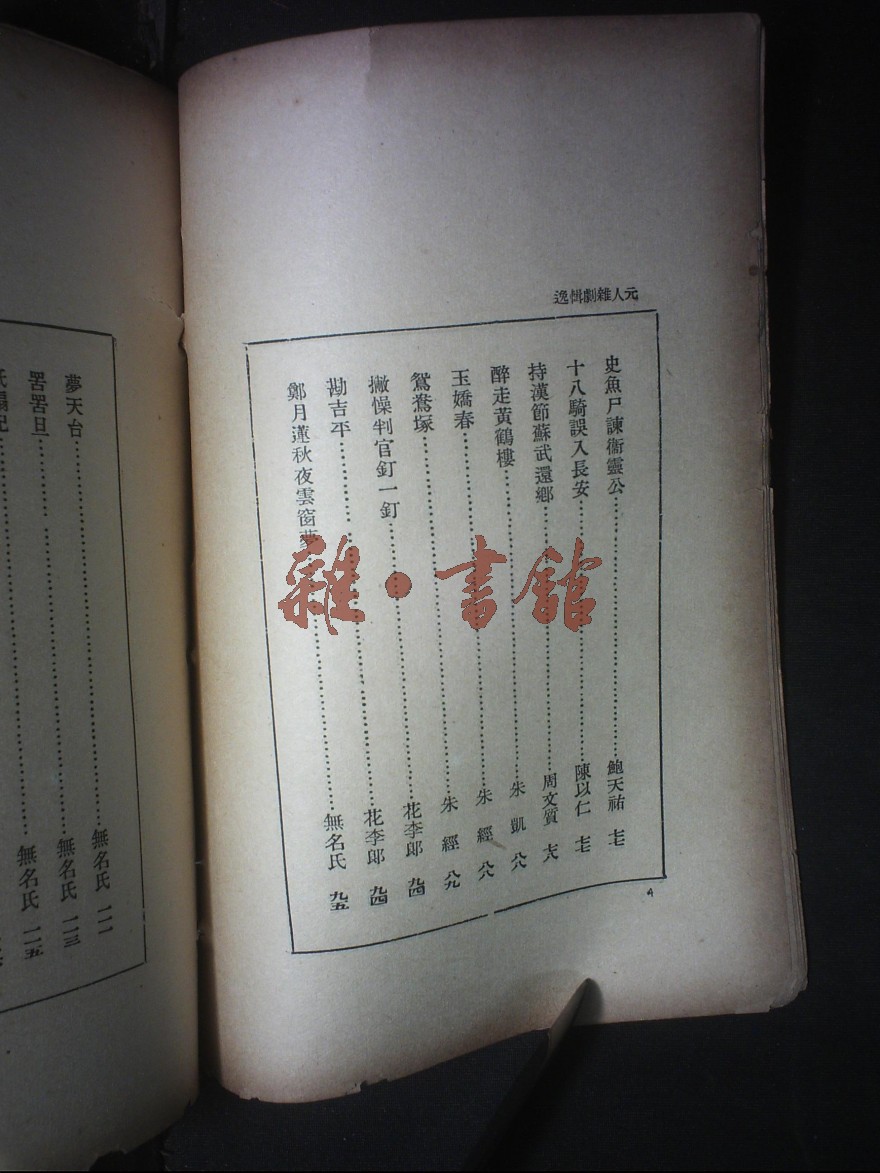 元人雜劇輯逸
史魚尸諫衞靈公……鮑天祐 七七
十八騎誤入長安……陳以仁 七七
持漢節蘇武還鄉……周文質 七八
醉走黃鶴樓……朱凱 八八
玉嬌春……朱經 八八
鴛鴦塚……朱經 八九
撇懆判官釘一釘……花李郎 九四
勘吉平……花李郎 九四
鄭月蓮秋夜雲窗夢……無名氏 九五
4
夢天台……無名氏 一一一
罟罟旦……無名氏 一一三
記……無名氏 一一五
雜·書館